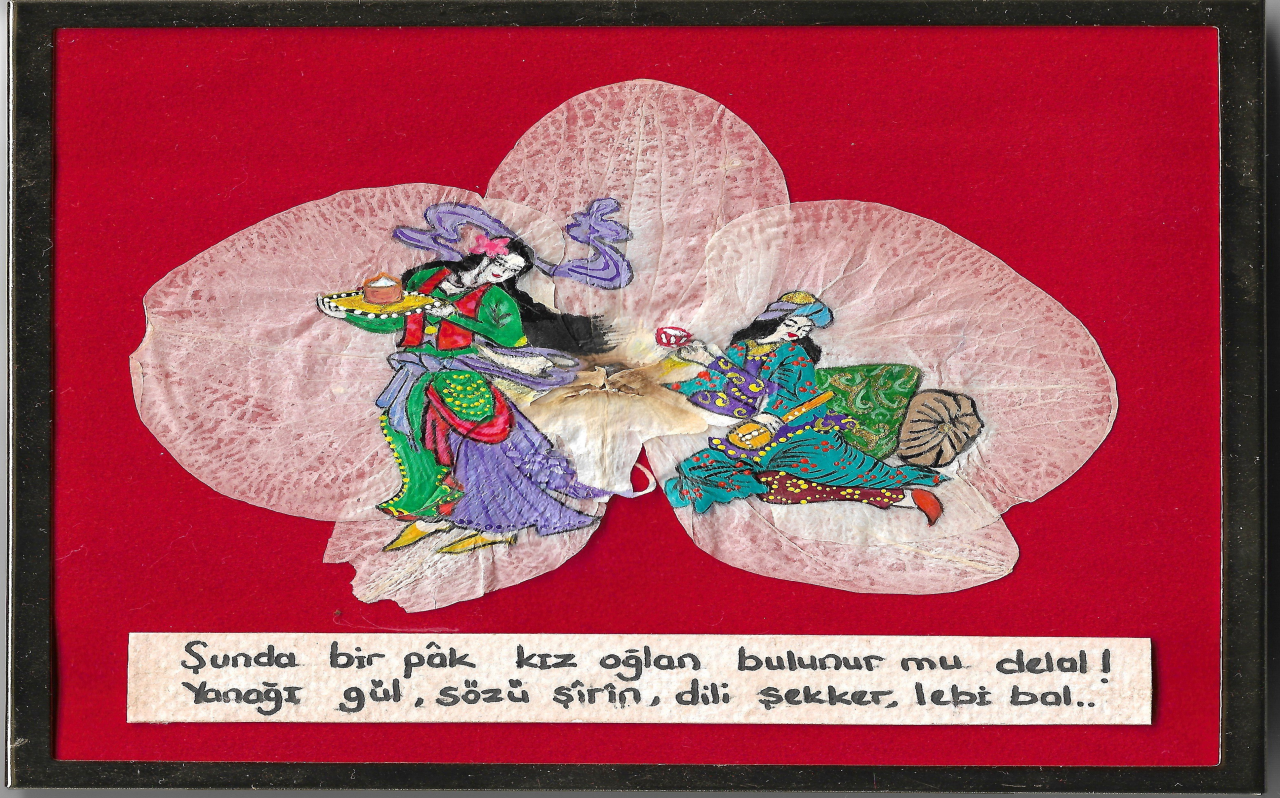 Şunda bir pâk kız oğlan bulunur mu delal!
Yanağı gül, sözü şîrîn, dili şekker, lebi bal..